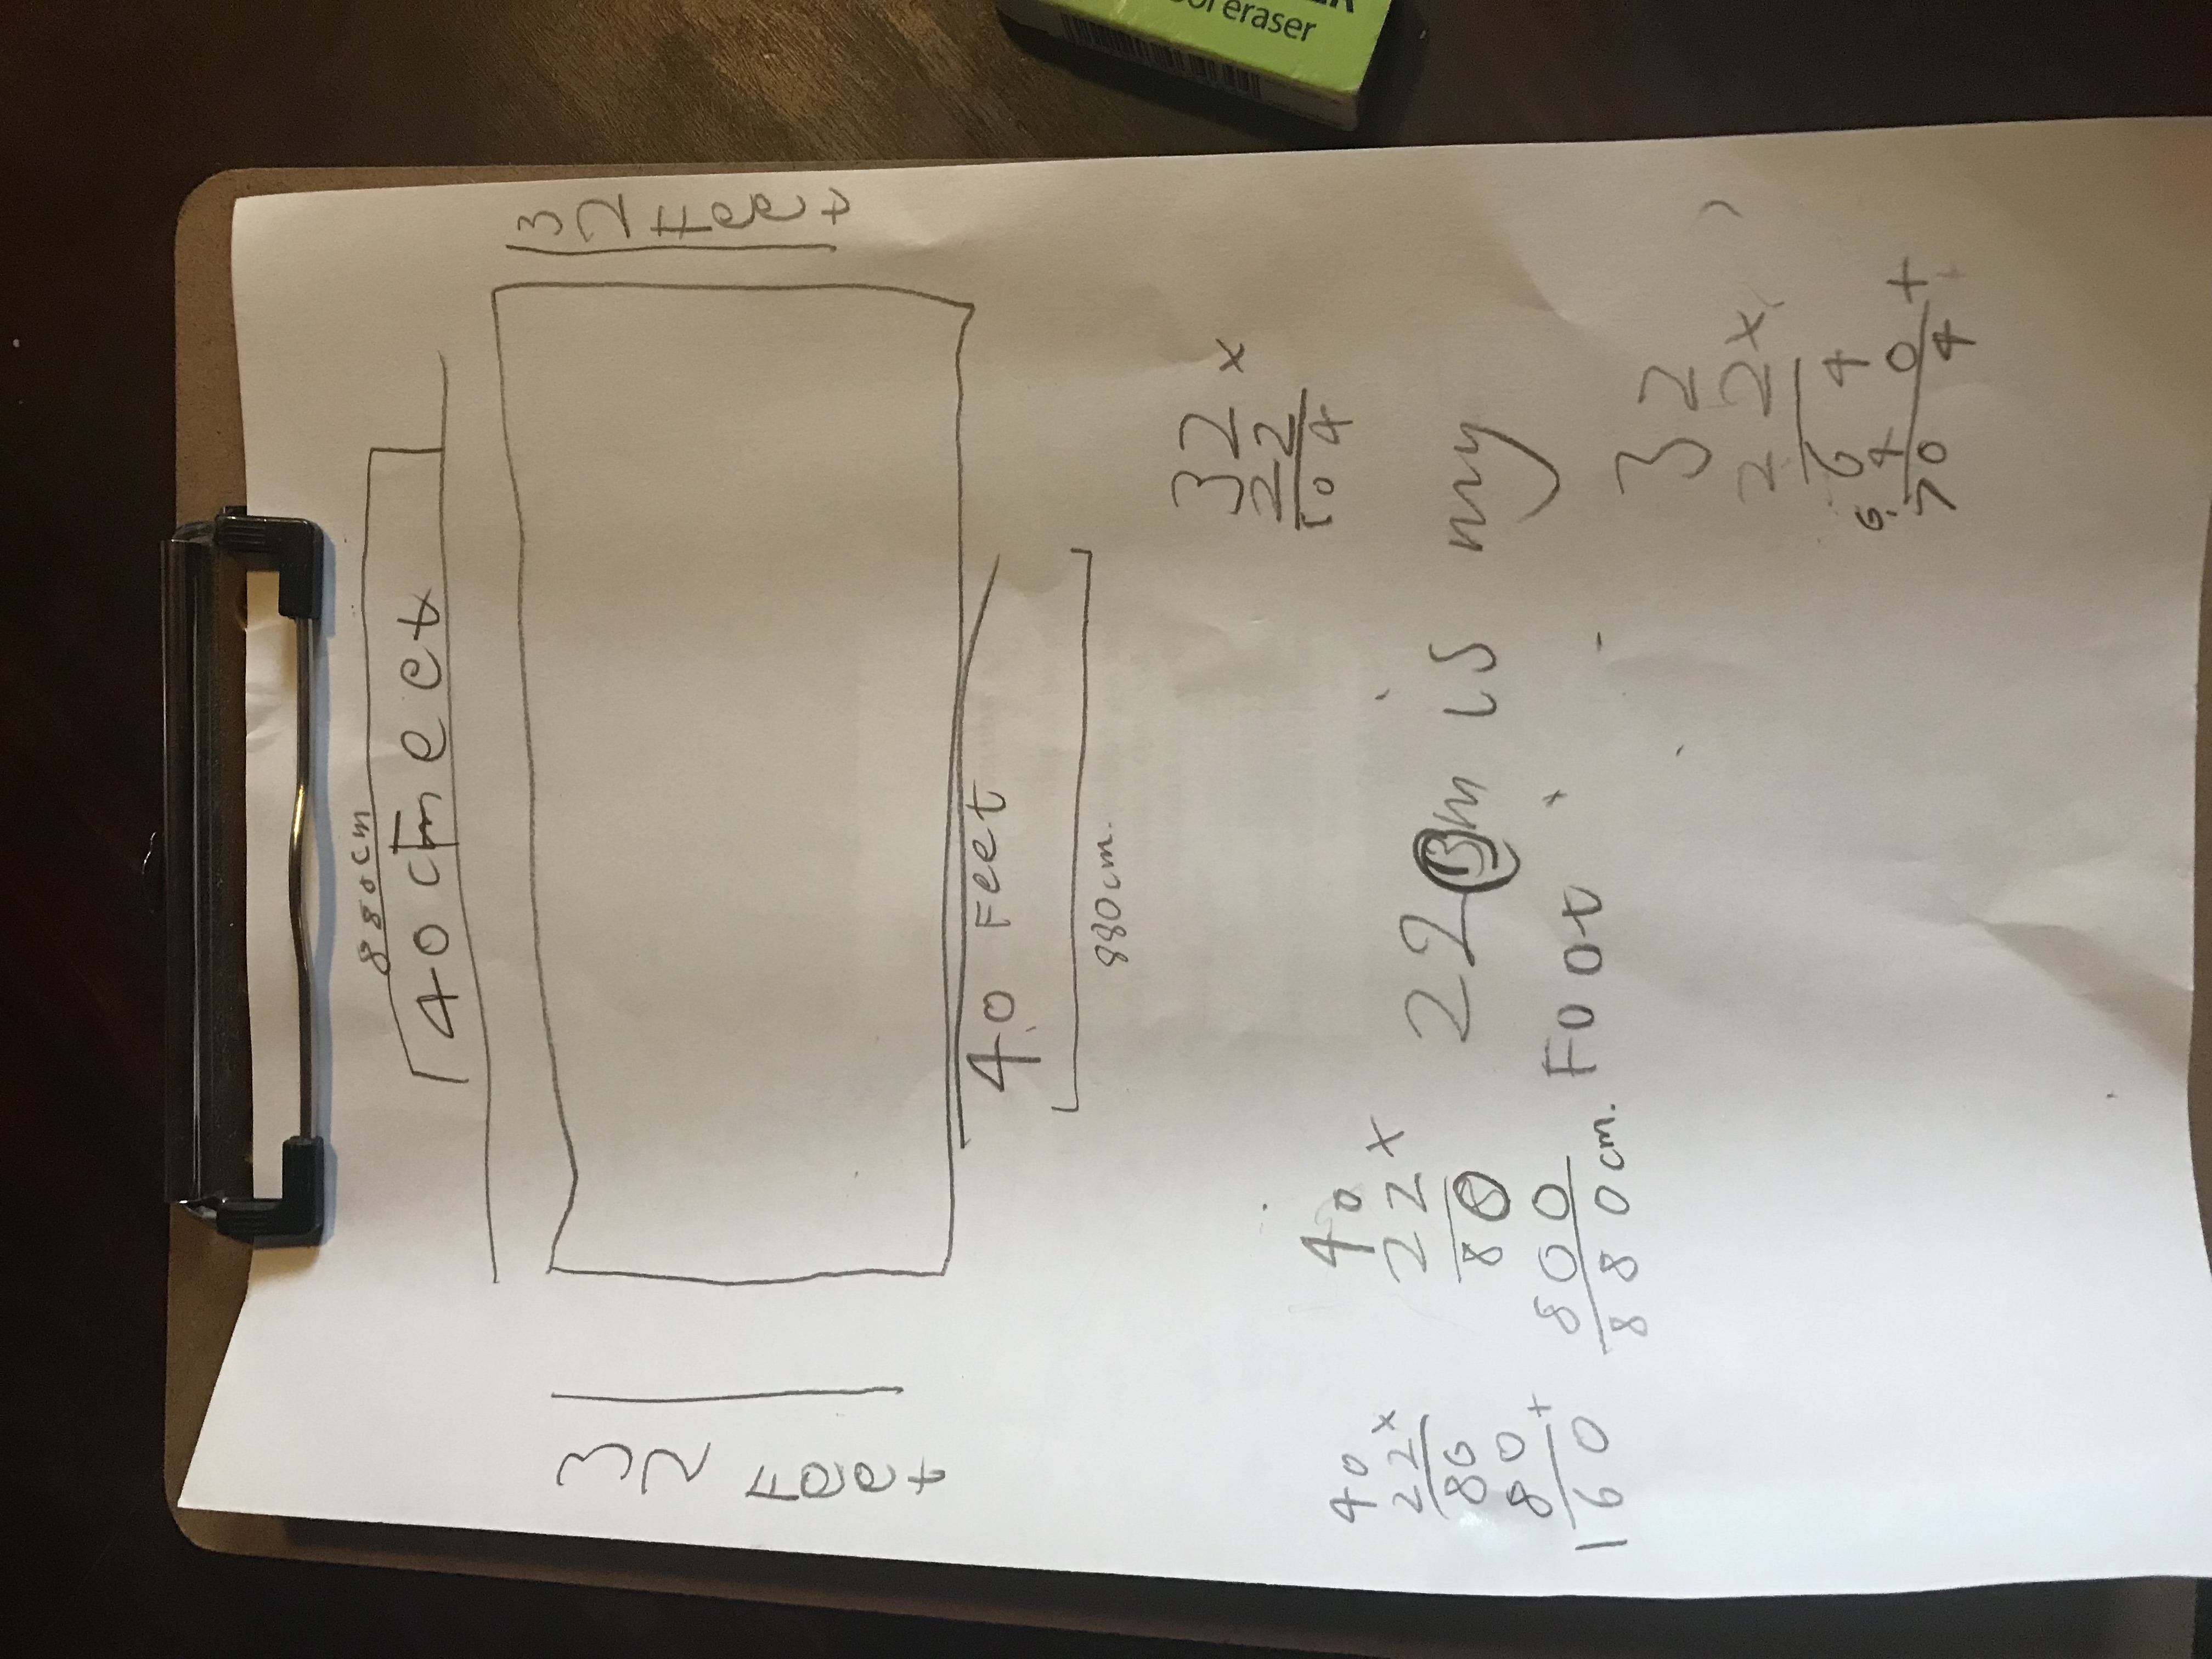 880cm
40 cm Feet
32 Feet
32 Feet
40 Feet
880cm.
32 x
22
104
40
22 x
80
80 +
160
40
22 x
80
800
880cm.
22cm is my
Foot
32
22 x
64
640 +
704
eraser